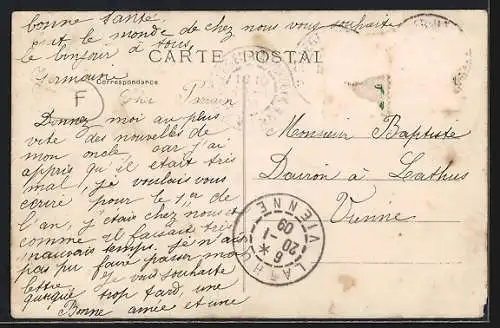 bonne santé.
et le monde de chez nous vous souhait
le bonsoir à tous
Germaine
CARTE POSTAL
Correspondance
F
Cher Parrain
Donnez moi au plus
vite des nouvelles de
mon oncle, car j'ai
appris qu'il était très
mal, je voulais vous
écrire pour le 1er de
l'an, j étais chez nous et
comme il faisait très
mauvais temps. je n'ai
pas pu faire passer mon
lettre je vous souhaite
quoique trop tard, une
Bonne année et une
Monsieur Baptiste
Dairon à Lathus
Vienne
LATHUS VIENNE
6 *
20 -1
09